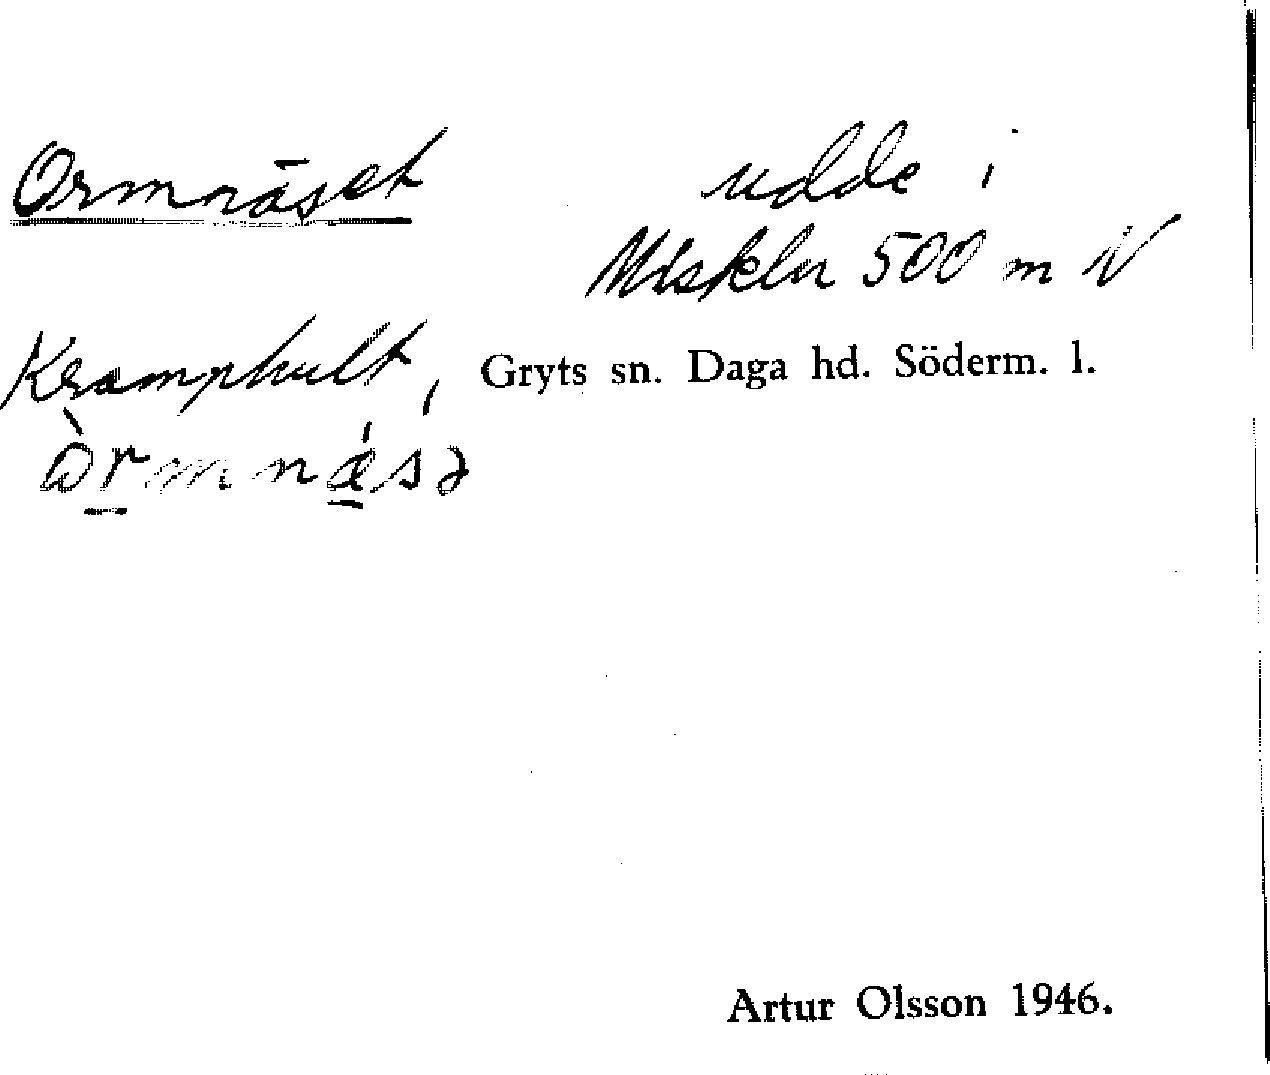 Ormnäset udde i
Misteln 500 m V
Kramphult, Gryts sn. Daga hd. Söderm. l.
Artur Olsson 1946.